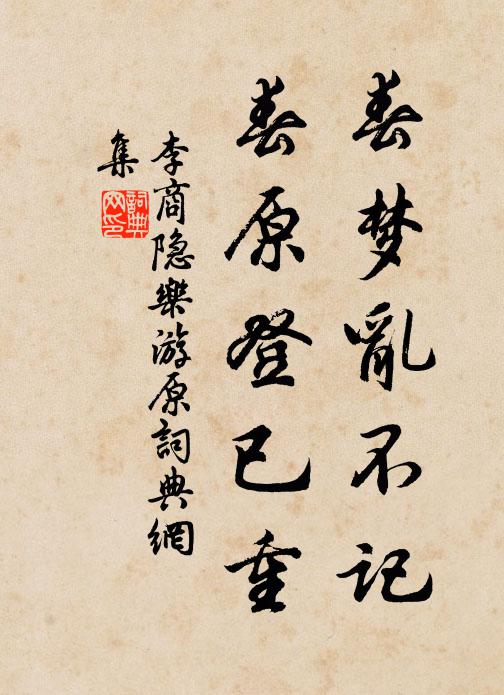 春梦亂不记
春原登已重
李商隐樂游原詞典網
集
詞典
网印